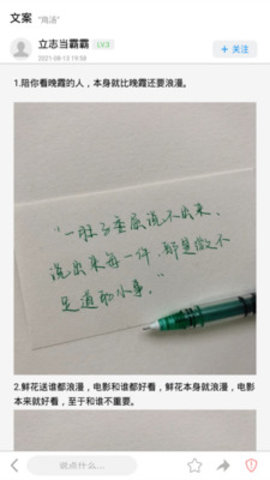 文案 "商洛"
立志当霸霸 LV.3
2021-08-13 19:58
+ 关注
1.陪你看晚霞的人，本身就比晚霞还要浪漫。
"一肚子委屈说不出来，
说出来每一件，都是微不
足道的小事。"
2.鲜花送谁都浪漫，电影和谁都好看，鲜花本身就浪漫，电影
本来就好看，至于和谁不重要。
说点什么...